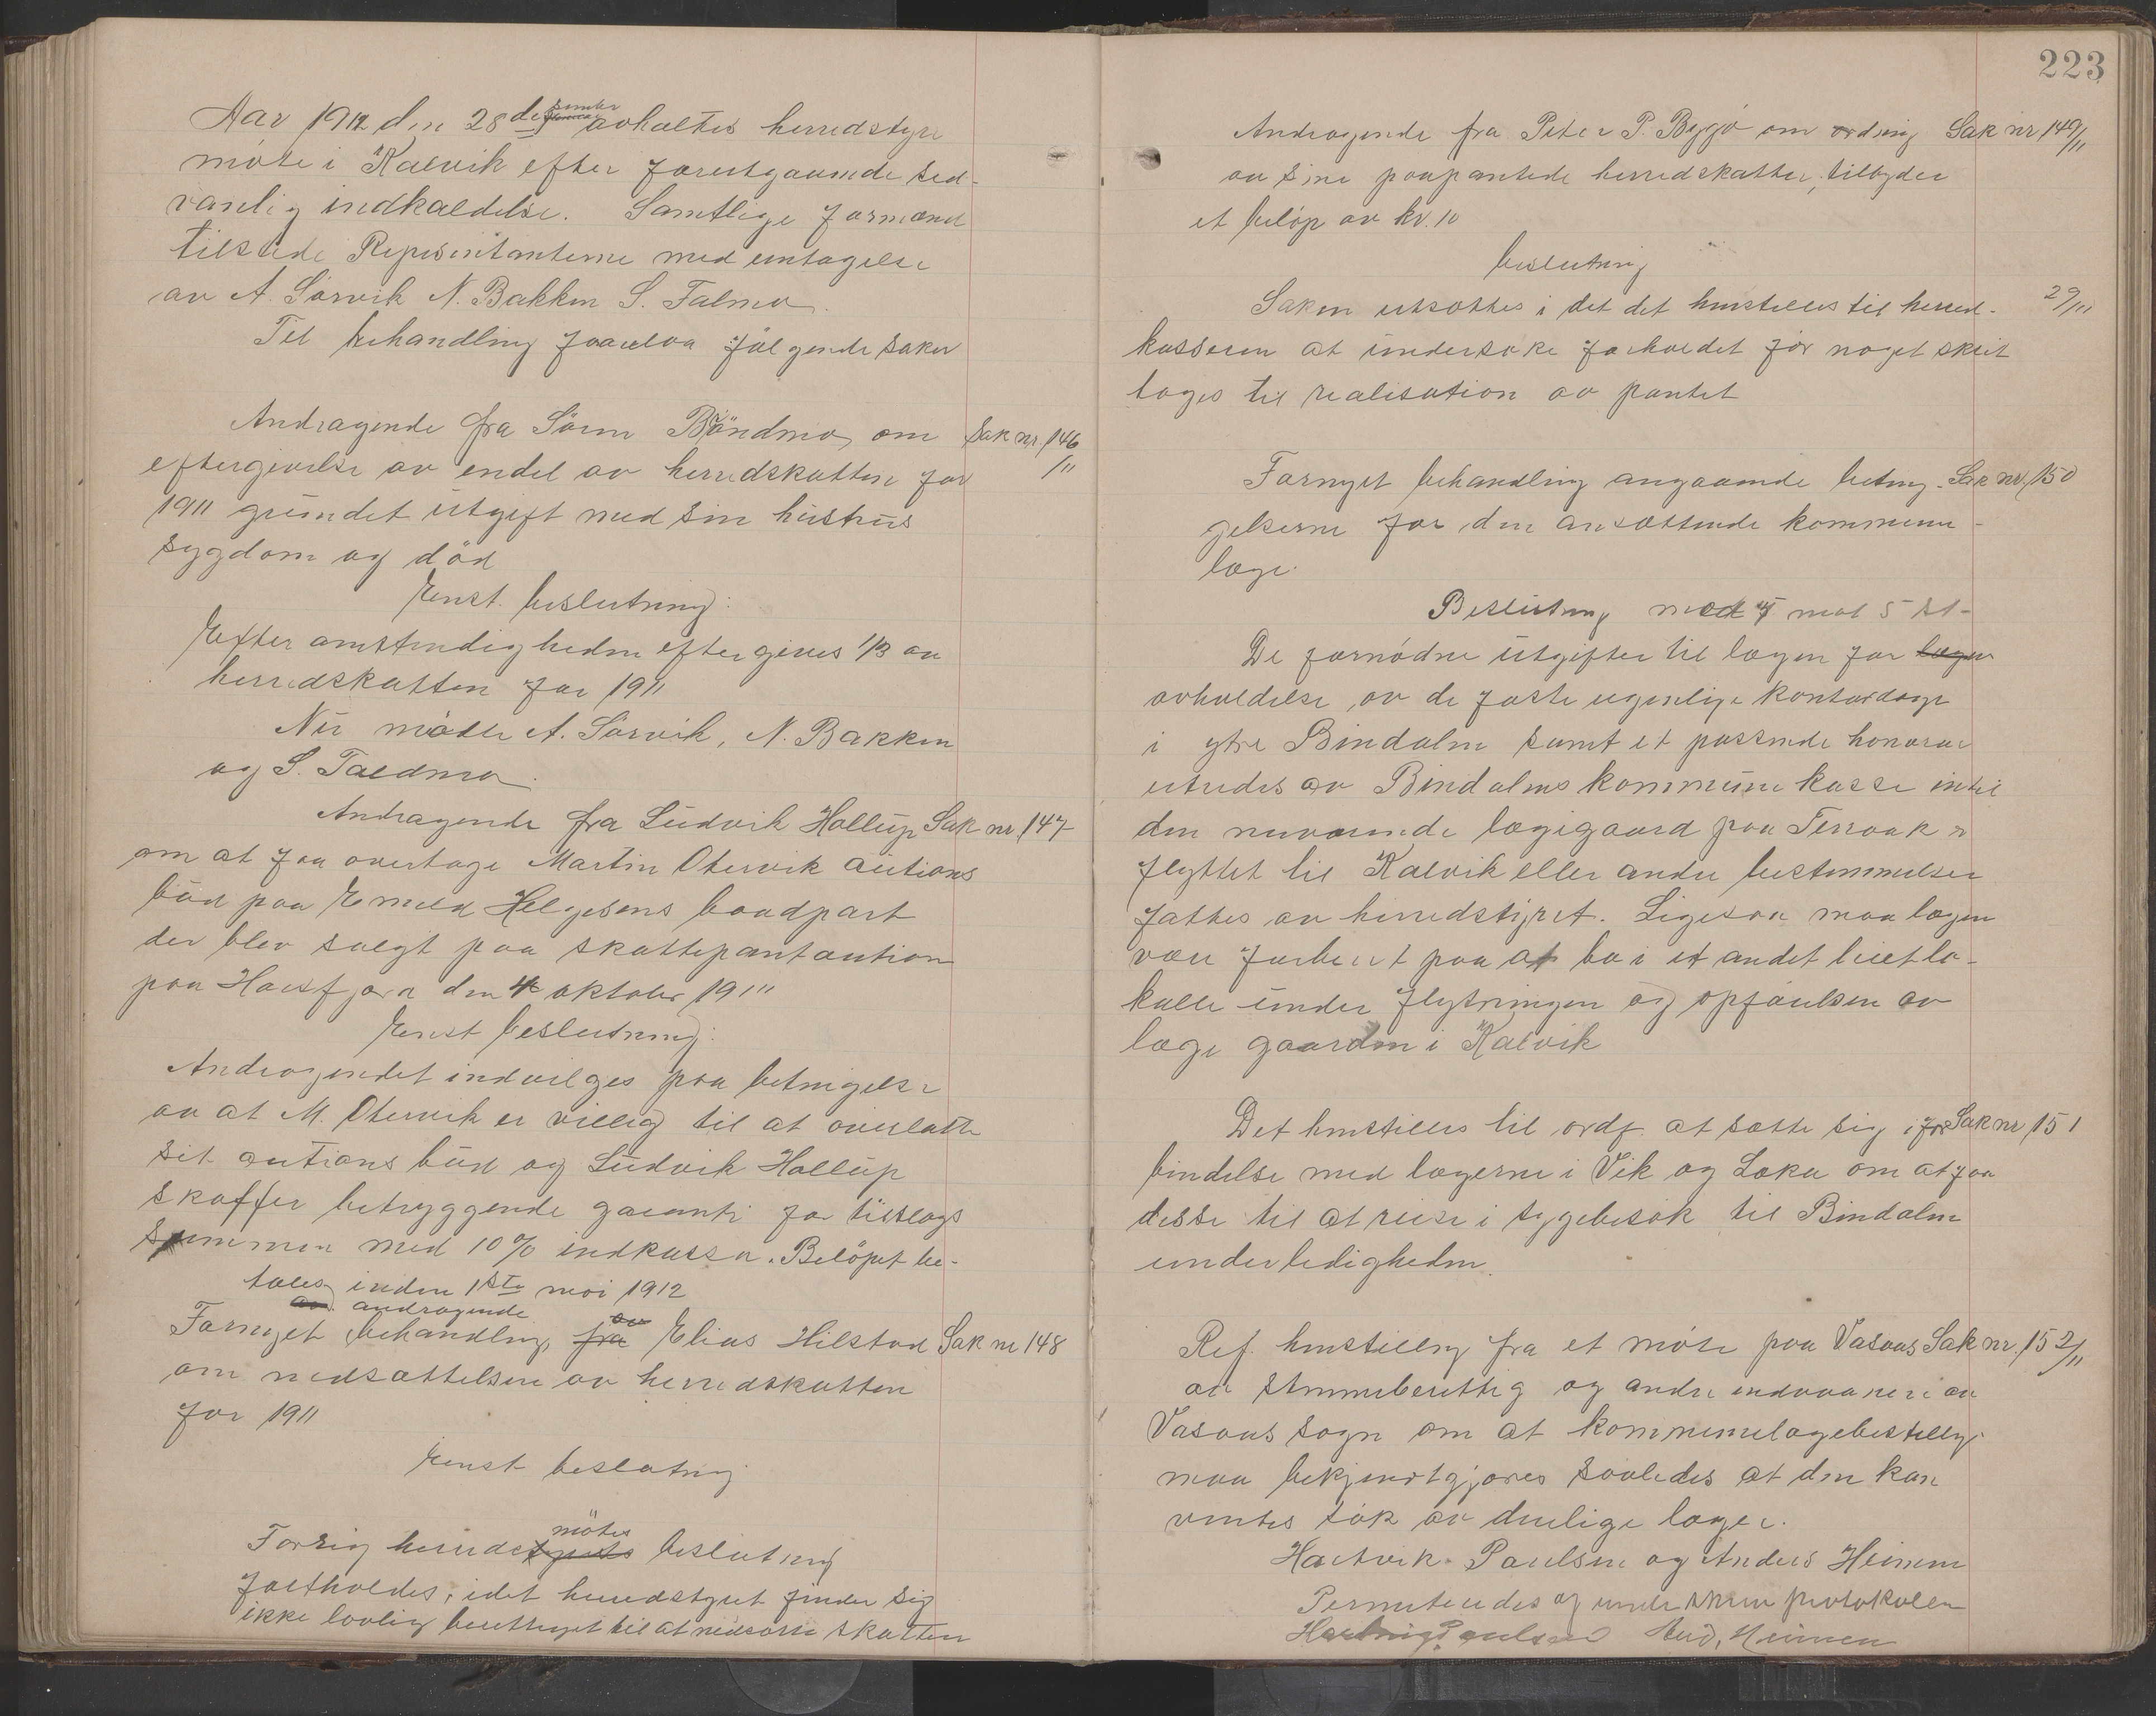 Aar 1912 den 28 desember avholtes herredstyre
möte i Kalvik efter forutgaaende sed-
vanlig indkaldelse. Samtlige formænd
tilstede Representanterne med untagelse
av A. Sörvik N. Bakken S. Talmo.
Til behandling forelaa fölgende saker
Andragende fra Sören Bröndmo, om Sak nr. 146/11
eftergivelse av endel av herredskatten for
1911 grundet utgift med sin hustrus
sygdom og död
Enst. beslutning:
Efter omstendigheden eftergives 1/3 av
herredskatten for 1911
Nu mötte A. Sörvik, N. Bakken
og S. Taldmo.
Andragende fra Ludvik Hollup Sak nr 147
om at faa overtage Martin Otervik autions
bud paa Emeld Helgesens baadpart
der blev solgt paa skattepantaution
paa Horsfjord den 4 oktober 1911
Enst beslutning:
Andragendet indvilges paa betingelse
av at M. Otervik er villig til at overlatte
sit autions bud og Ludvik Hollup
skaffer betryggende garanti for tilslags
summen med 10% indkassa. Belöpet be-
tales inden 1ste mai 1912
Fornyet behandling av andragende av Elias Hilstad Sak nr 148
om nedsættelsen av herredskatten
for 1911
Enst beslutning
Forrig herredsmötes beslutning
fastholdes, idet herredstyret finder sig
ikke lovlig berettiget til at nedsætte skatten
223
Andragende fra Peter P. Bygö om ordning Sak nr 149/11
av sine paapantede herredskatter, tilbyder
et belöp av kr. 10
beslutning
Saken utsættes i det det henstilles til herred- 29/11
kasseren at undersöke forholdet för noget skrit
tages til realisation av pantet
Fornyet behandling angaaende beting- Sak nr. 150
gelserne for den ansættende kommune-
læge.
Beslutning med mot 5 st-
De fornödne utgifter til lægen for lægen
avholdelse av de faste ugenlige kontordage
i ytre Bindalen samt et passende honorar
utredes av Bindalens kommune kasse intil
den nuværende lægegaard paa Terraak er
flyttet til Kalvik eller andre bestemmelser
fattes av herredstyret. Ligesaa maa lægen
være forberet paa at bo i et andet leiet lo-
kalle under flytningen og opförelsen av
læge gaarden i Kalvik
Det henstilles til ordf. at sætte sig i for Sak nr 151
bindelse med lægerne i Vik og Leka om at faa
disse til at reise i sygebesök til Bindalen
under ledigheden.
Ref. henstilling fra et möte paa Vasaas Sak nr. 152/11
av stemmeberettig og andre indvaanere av
Vasaas sogn om at kommunelægebestilling
maa bekjendtgjöres saaledes at den kan
ventes sök av duelige læger.
Hartvik Paulsen og Anders Heimen
Permiteredes og underskrev protokollen
Hartvig Paulsen And. Heimen